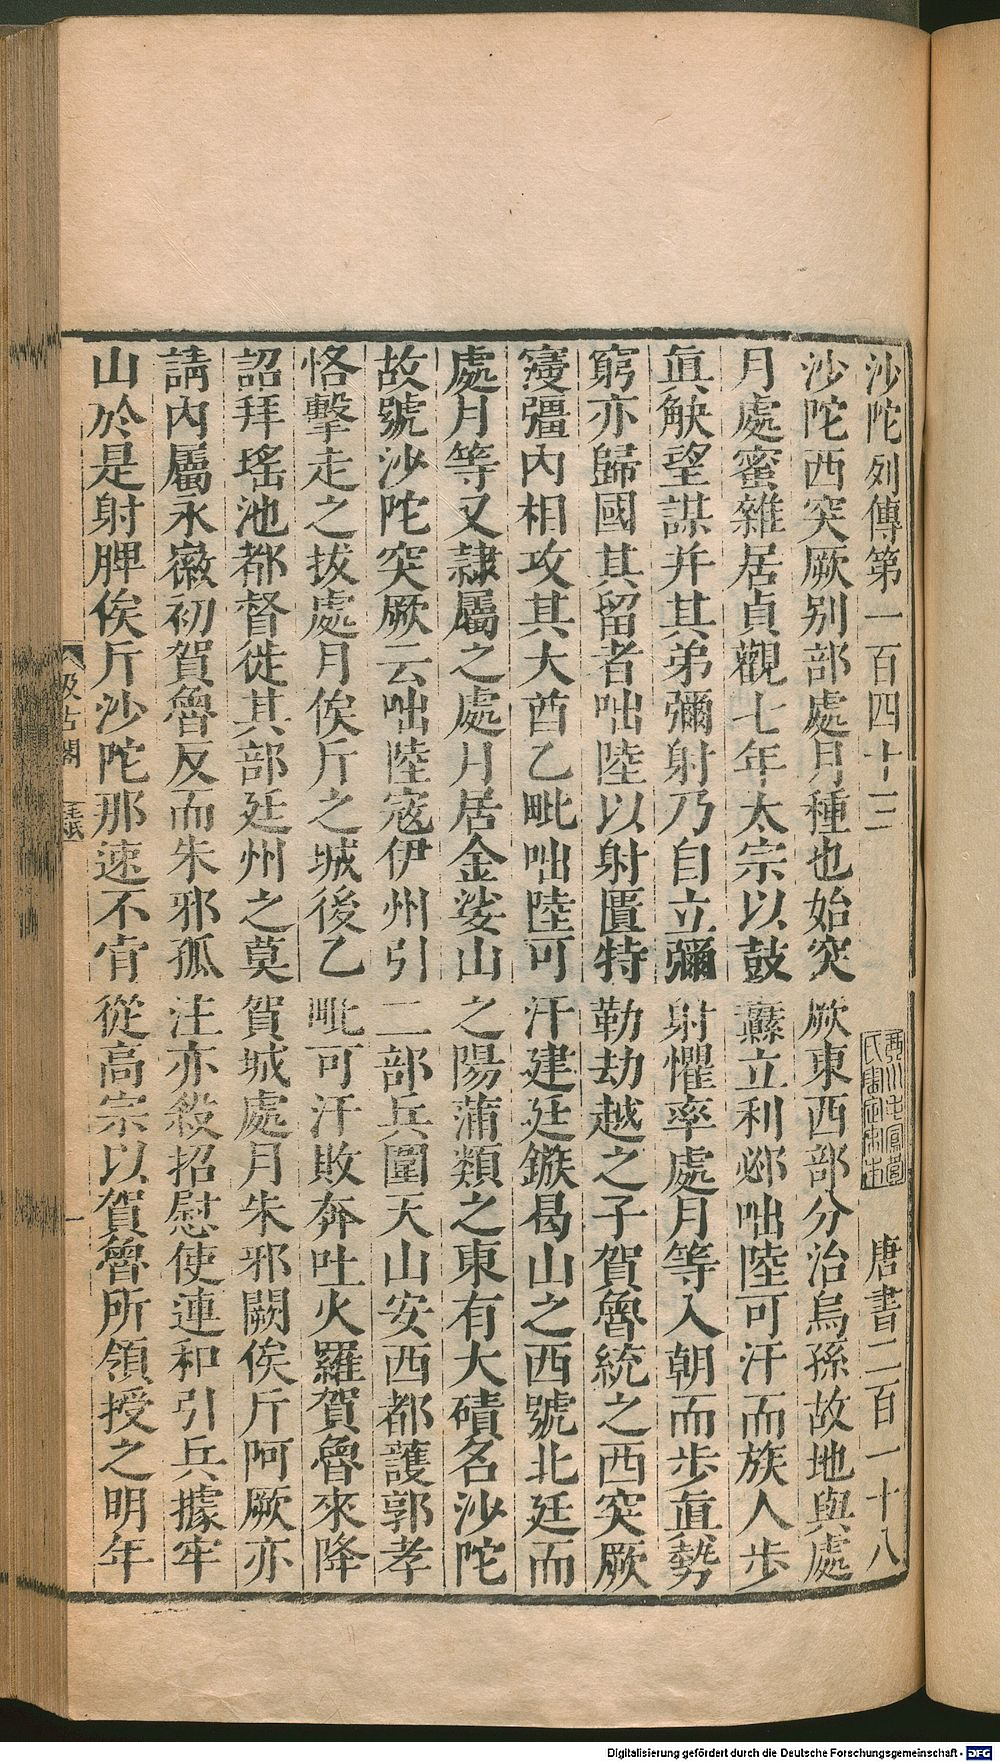 沙陀列傳第一百四十三
唐書二百一十八
沙陀西突厥別部處月種也始突厥東西部分治烏孫故地與處
月處蜜雜居貞觀七年太宗以鼓纛立利邲咄陸可汗而族人步
眞觖望謀并其弟彌射乃自立彌射懼率處月等入朝而步眞勢
窮亦歸國其留者咄陸以射匱特勒劫越之子賀魯統之西突厥
寖彊內相攻其大酋乙毗咄陸可汗建廷鏃曷山之西號北廷而
處月等又隸屬之處月居金娑山之陽蒲類之東有大磧名沙陀
故號沙陀突厥云咄陸寇伊州引二部兵圍天山安西都護郭孝
恪擊走之拔處月俟斤之城後乙毗可汗敗奔吐火羅賀魯來降
詔拜瑤池都督徙其部廷州之莫賀城處月朱邪闕俟斤阿厥亦
請內屬永徽初賀魯反而朱邪孤注亦殺招慰使連和引兵據牢
山於是射脾俟斤沙陀那速不肯從高宗以賀魯所領授之明年
汲古閣
一
Digitalisierung gefördert durch die Deutsche Forschungsgemeinschaft - DFG